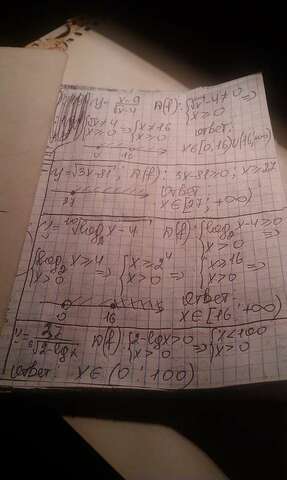 y = \frac{x-9}{\sqrt{x}-4} D(f): {√x-4≠0 x≥0 =>
{√x≠4 x≥0 => {x≠16 x≥0 Ответ:
0 16 x∈[0;16)∪(16;+∞)
y=√3x-81; D(f): 3x-81≥0; x≥27
27 Ответ:
x∈[27; +∞)
y=\sqrt[10]{log₂x-4} D(f): {log₂x-4≥0 x>0 =>
{log₂x≥4 x>0 => {x≥2⁴ x>0 => {x≥16 x>0 =>
0 16 Ответ:
x∈[16;+∞)
y=\frac{3x}{\sqrt{2-lgx}} D(f): {2-lgx>0 x>0 => {x>100 x>0
Ответ: x∈(0;100)